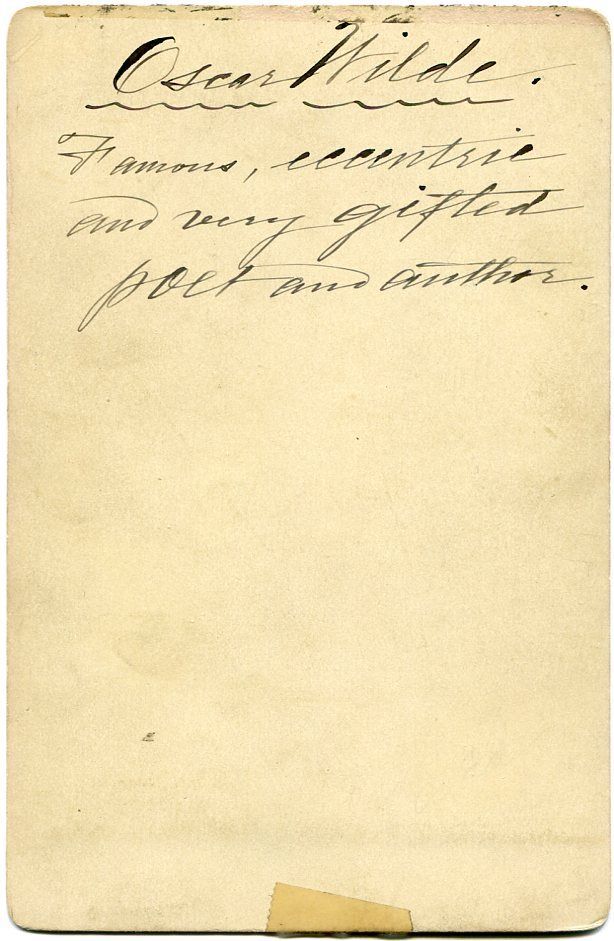 Oscar Wilde.
Famous, eccentric
and very gifted
poet and author.